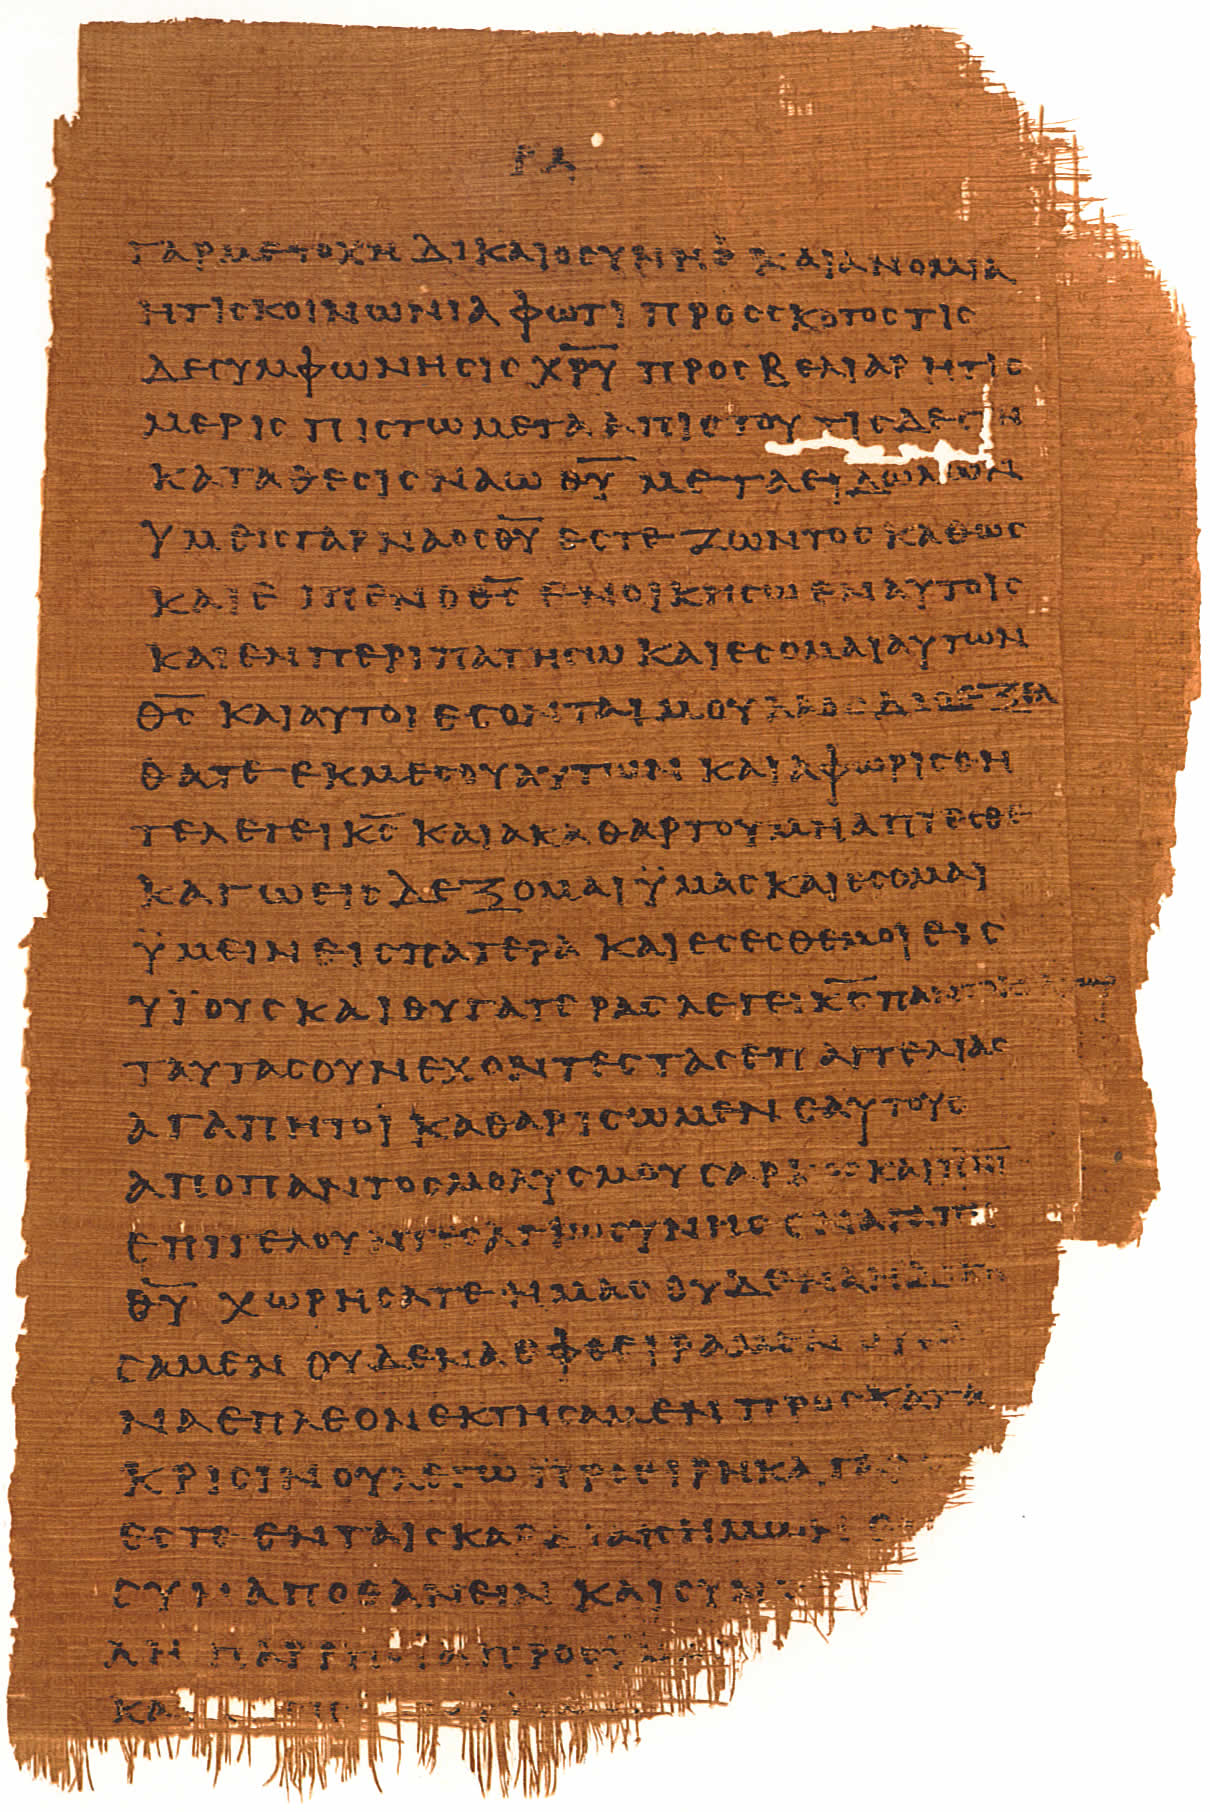 ΡΛ
ΓΑΡΜΕΤΟΧΗ ΔΙΚΑΙΟCΥΝΗ ΚΑΙΑΝΟΜΙΑ
ΗΤΙCΚΟΙΝΩΝΙΑ ΦΩΤΙ ΠΡΟCCΚΟΤΟCΤΙC
ΔΕCΥΜΦΩΝΗCΙC Χ̅Ρ̅Υ̅ ΠΡΟCΒΕΛΙΑΡ ΗΤΙC
ΜΕΡΙC ΠΙCΤΩΜΕΤΑΑΠΙCΤΟΥ ΤΙCΔΕCΥΝ
ΚΑΤΑΘΕCΙCΝΑΩ Θ̅Υ̅ ΜΕΤΑΕΙΔΩΛΩΝ
ΥΜΕΙCΓΑΡΝΑΟCΘ̅Υ̅ ΕCΤΕ ΖΩΝΤΟCΚΑΘΩC
ΚΑΙΕΙΠΕΝΟΘ̅C̅ ΕΝΟΙΚΗCΩΕΝΑΥΤΟΙC
ΚΑΙΕΝΠΕΡΙΠΑΤΗCΩ ΚΑΙΕCΟΜΑΙΑΥΤΩΝ
Θ̅C̅ ΚΑΙΑΥΤΟΙ ΕCΟΝΤΑΙΜΟΥΛΑΟCΔΙΟΕΞΕΛ
ΘΑΤΕ ΕΚΜΕCΟΥΑΥΤΩΝ ΚΑΙΑΦΩΡΙCΘΗ
ΤΕΛΕΓΕΙΚ̅C̅ ΚΑΙΑΚΑΘΑΡΤΟΥΜΗΑΠΤΕCΘΕ
ΚΑΓΩΕΙCΔΕΞΟΜΑΙΫΜΑCΚΑΙΕCΟΜΑΙ
ΫΜΕΙΝΕΙCΠΑΤΕΡΑ ΚΑΙΕCΕCΘΕΜΟΙΕΙC
ΥΪΟΥCΚΑΙΘΥΓΑΤΕΡΑCΛΕΓΕΙΚ̅C̅ΠΑΝΤΟΚΡΑΤΩΡ
ΤΑΥΤΑCΟΥΝΕΧΟΝΤΕCΤΑCΕΠΑΓΓΕΛΙΑC
ΑΓΑΠΗΤΟΙ ΚΑΘΑΡΙCΩΜΕΝ ΕΑΥΤΟΥC
ΑΠΟΠΑΝΤΟCΜΟΛΥCΜΟΥCΑΡΚΟC ΚΑΙΠ̅Ν̅Ι̅
ΕΠΙΤΕΛΟΥΝΤΕCΑΓΙΩCΥΝΗC ΕΝΑΓΑΠΗ
Θ̅Υ̅ ΧΩΡΗCΑΤΕ ΗΜΑC ΟΥΔΕΝΑΗΔΙΚΗ
CΑΜΕΝ ΟΥΔΕΝΑΕΦΘΕΙΡΑΜΕΝ ΟΥΔΕ
ΝΑΕΠΛΕΟΝΕΚΤΗCΑΜΕΝ ΠΡΟCΚΑΤΑ
ΚΡΙCΙΝΟΥΛΕΓΩ ΠΡΟΕΙΡΗΚΑΓΑΡ
ΕCΤΕ ΕΝΤΑΙCΚΑΡΔΙΑΙCΗΜΩΝ
CΥΝΑΠΟΘΑΝΕΙΝ ΚΑΙCΥΝ
ΛΗ ΠΑΡΡΗCΙΑΠΡΟCΥΜΑC
ΚΑ